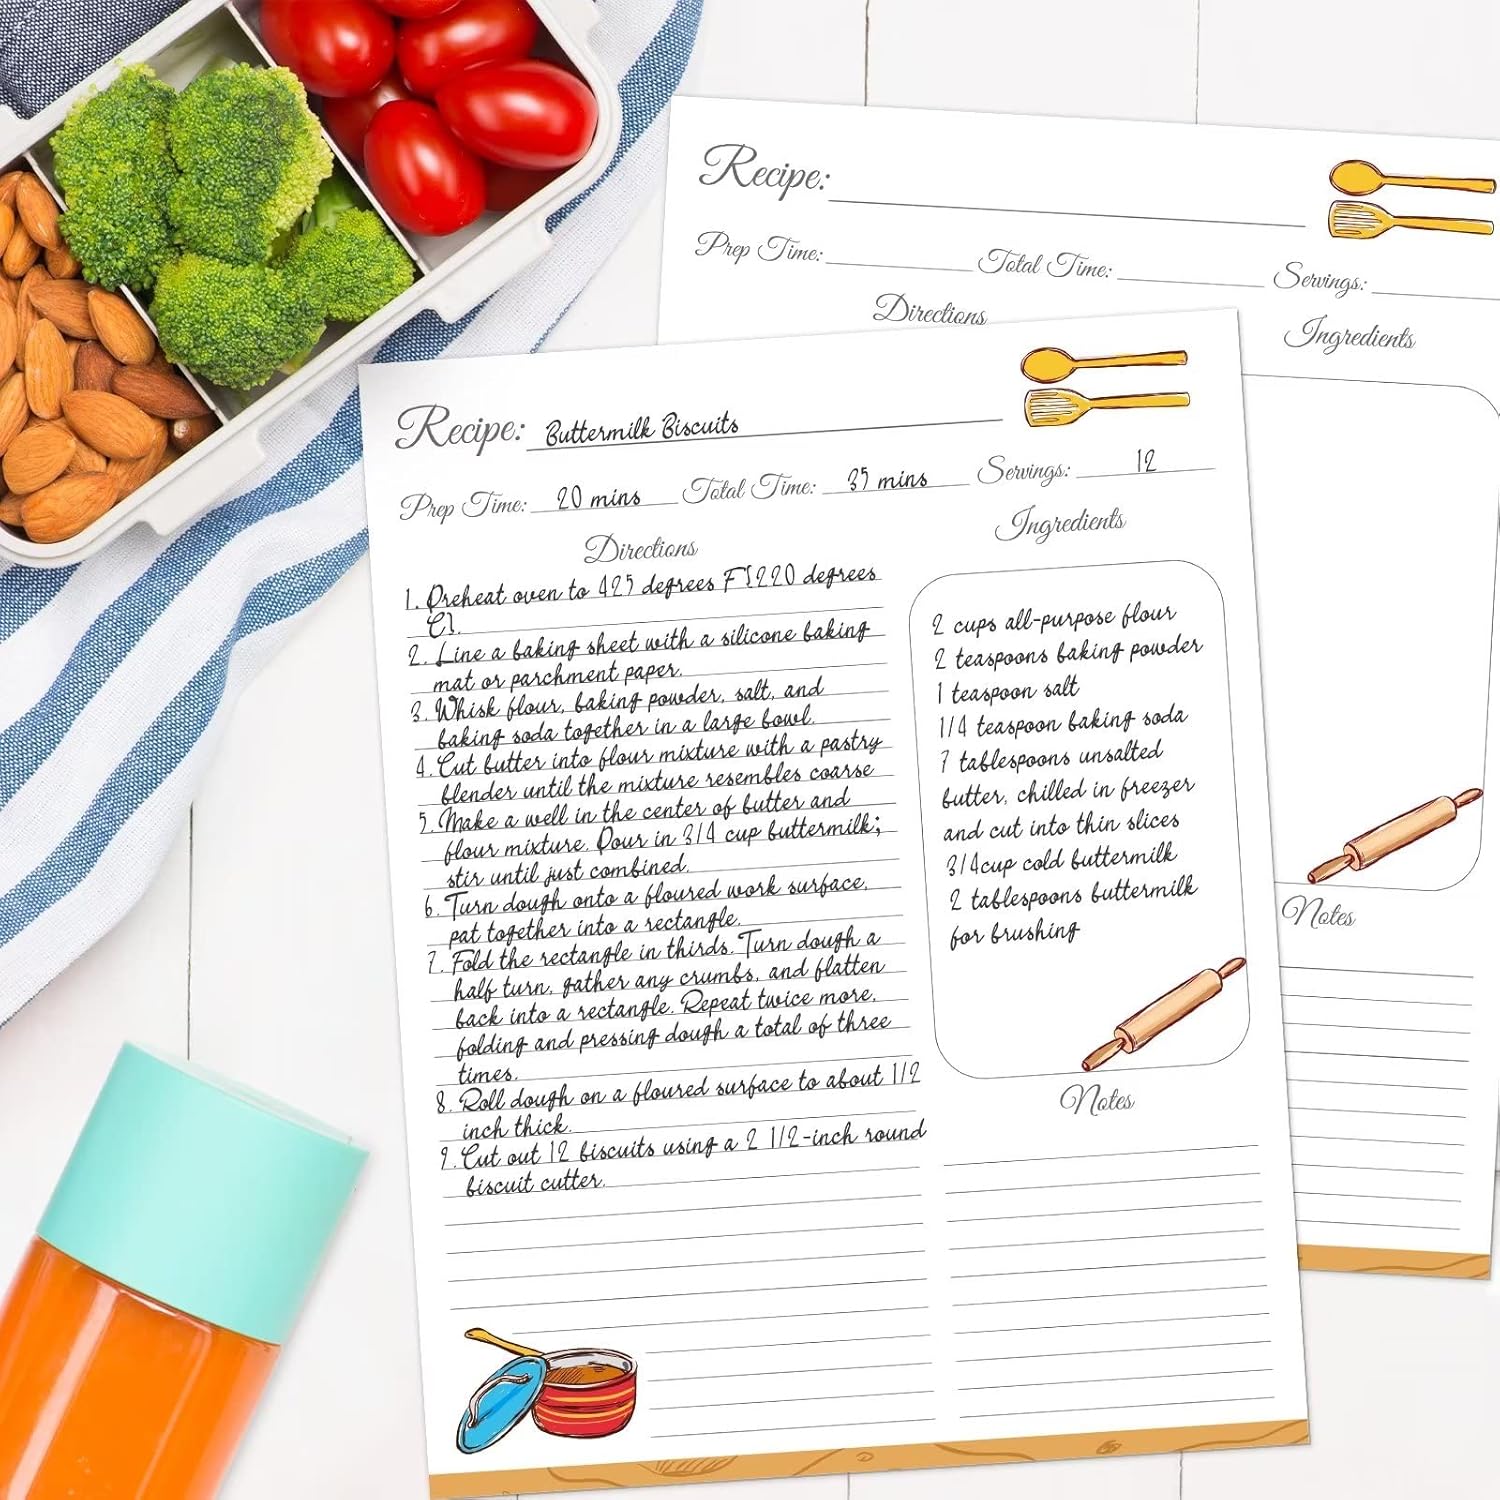 Recipe:
Prep Time: Total Time: Servings:
Directions Ingredients
Notes
Recipe: Buttermilk Biscuits
Prep Time: 20 mins Total Time: 35 mins Servings: 12
Directions
1. Preheat oven to 425 degrees F[220 degrees
C].
2. Line a baking sheet with a silicone baking
mat or parchment paper.
3. Whisk flour, baking powder, salt, and
baking soda together in a large bowl.
4. Cut butter into flour mixture with a pastry
blender until the mixture resembles coarse
5. Make a well in the center of butter and
flour mixture. Pour in 3/4 cup buttermilk;
stir until just combined.
6. Turn dough onto a floured work surface,
pat together into a rectangle.
7. Fold the rectangle in thirds. Turn dough a
half turn, gather any crumbs, and flatten
back into a rectangle. Repeat twice more,
folding and pressing dough a total of three
times.
8. Roll dough on a floured surface to about 1/2
inch thick.
9. Cut out 12 biscuits using a 2 1/2-inch round
biscuit cutter.
Ingredients
2 cups all-purpose flour
2 teaspoons baking powder
1 teaspoon salt
1/4 teaspoon baking soda
7 tablespoons unsalted
butter, chilled in freezer
and cut into thin slices
3/4cup cold buttermilk
2 tablespoons buttermilk
for brushing
Notes